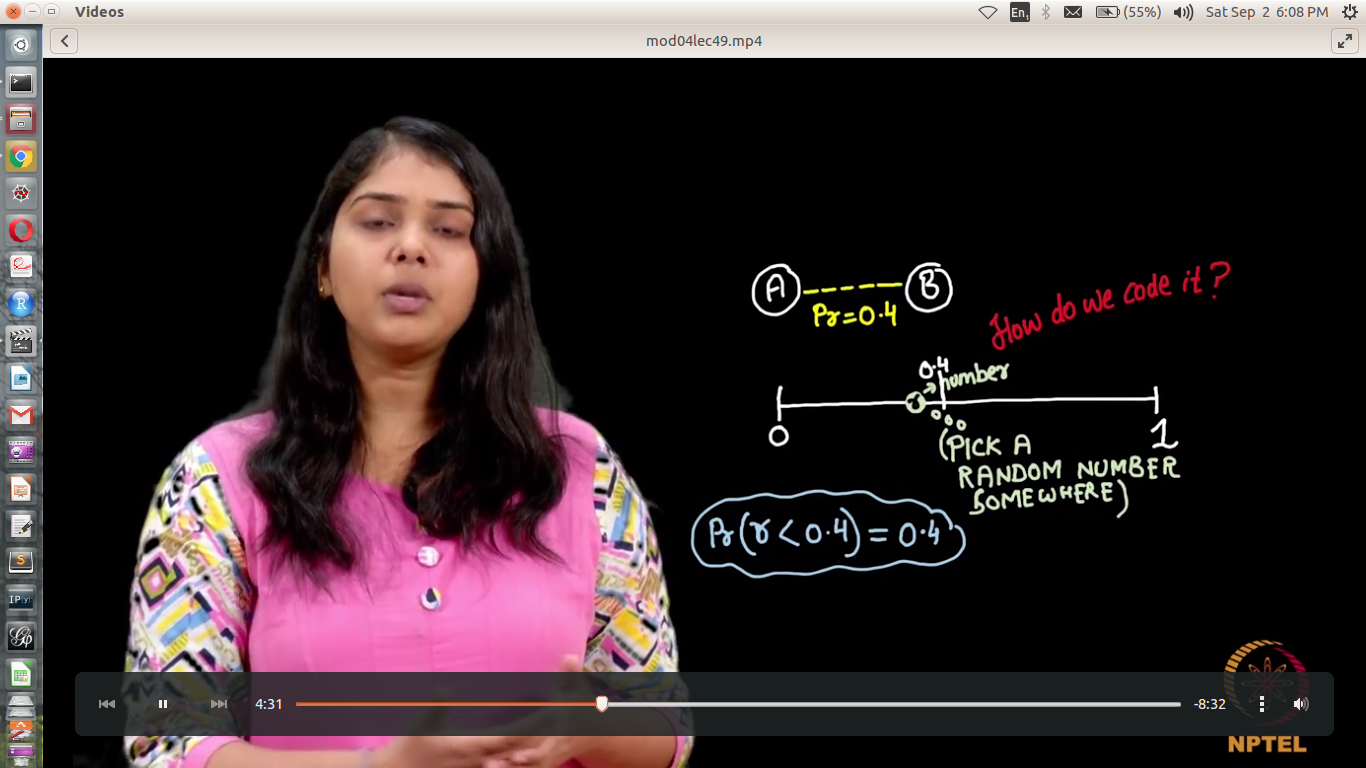 Videos
En1
(55%)
Sat Sep 2 6:08 PM
mod04lec49.mp4
A
B
Pr=0.4
How do we code it?
0.4
number
0
1
(PICK A
RANDOM NUMBER
SOMEWHERE)
Pr(r<0.4)=0.4
R
S
IP[y]:
4:31
-8:32
NPTEL